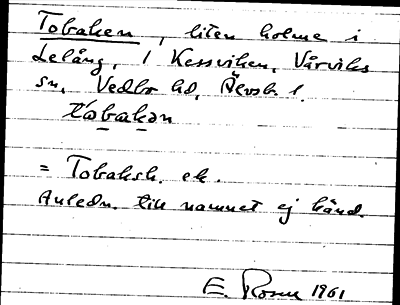 Tobaken, liten holme i
Lelång, i Kessviken, Vårviks
sn, Vedbo hd, Älvsb. l.
tóbakən
= Tobaksh. ek.
Anledn. till namnet ej känd.
E. Rosén 1961